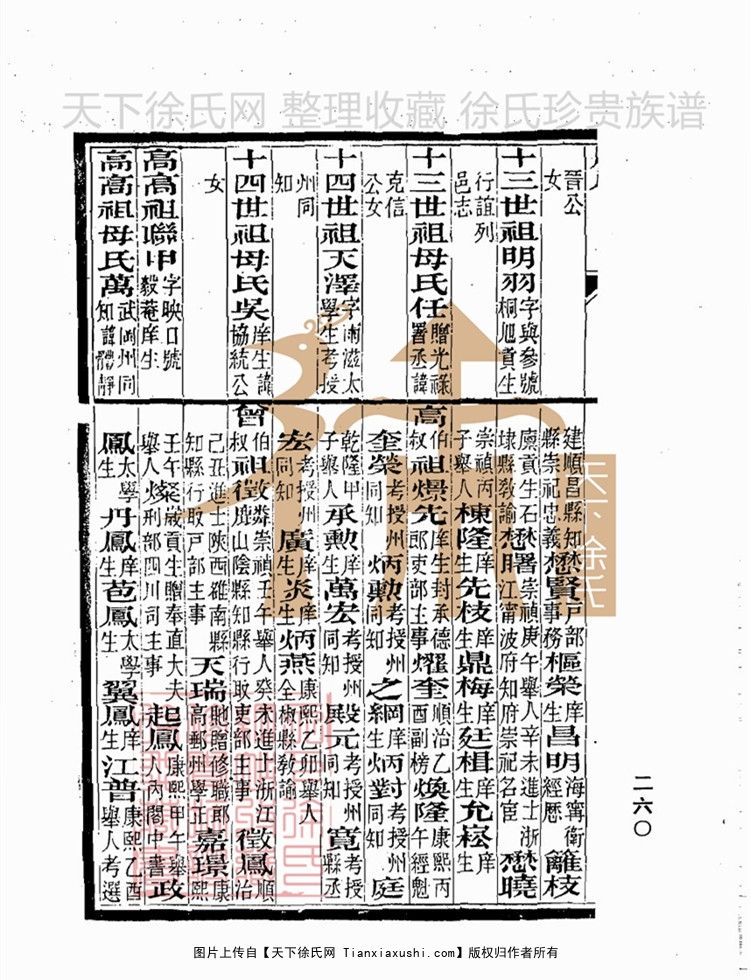 天下徐氏网 整理收藏 徐氏珍贵族谱
晉公女
十三世祖明羽字與參號桐旭貢生
行誼列邑志
十三世祖母氏任贈光祿署丞諱
克信公女
十四世祖天澤字南滋太學生考授
州同知
十四世祖母氏吳庠生諱協統公
女
高高祖聯甲字映口號毅菴庠生
高高祖母氏萬武岡州同知諱體靜
建順昌縣知縣崇祀忠義懋賢戶部事務樞榮庠生昌明海寧衛經歷籬枝
廩貢生石埭縣敎諭懋曙崇禎庚午舉人辛未進士浙江甯波府知府崇祀名宦懋曉
崇禎丙子舉人棟隆庠生先枝庠生鼎梅庠生廷楫庠生允崧庠生
高伯叔祖燝先庠生封承德郎吏部主事燿奎順治乙酉副榜煥隆康熙丙午經魁
奎榮考授州同知炳勲考授州同知之綱庠生炳對考授州同知庭
乾隆甲子舉人承勲庠生萬宏考授州同知殿元考授州同知寬考授縣丞
宏考授州同知廣庠生炎庠生炳燕康熙乙卯舉人全椒縣敎諭
曾伯叔祖徵麟崇禎壬午舉人癸未進士浙江山陰縣知縣行取吏部主事徵鳳順治
己丑進士陝西雒南縣知縣行取戶部主事天瑞貤贈修職郎高郵州學正嘉璟康熙
壬午舉人燦歲貢生贈奉直大夫刑部四川司主事起鳳康熙甲午舉人內閣中書政
鳳太學生丹鳳庠生苞鳳太學生翼鳳庠生江普康熙乙酉舉人考選
天下徐氏
二六〇
图片上传自【天下徐氏网 Tianxiaxushi.com】版权归作者所有